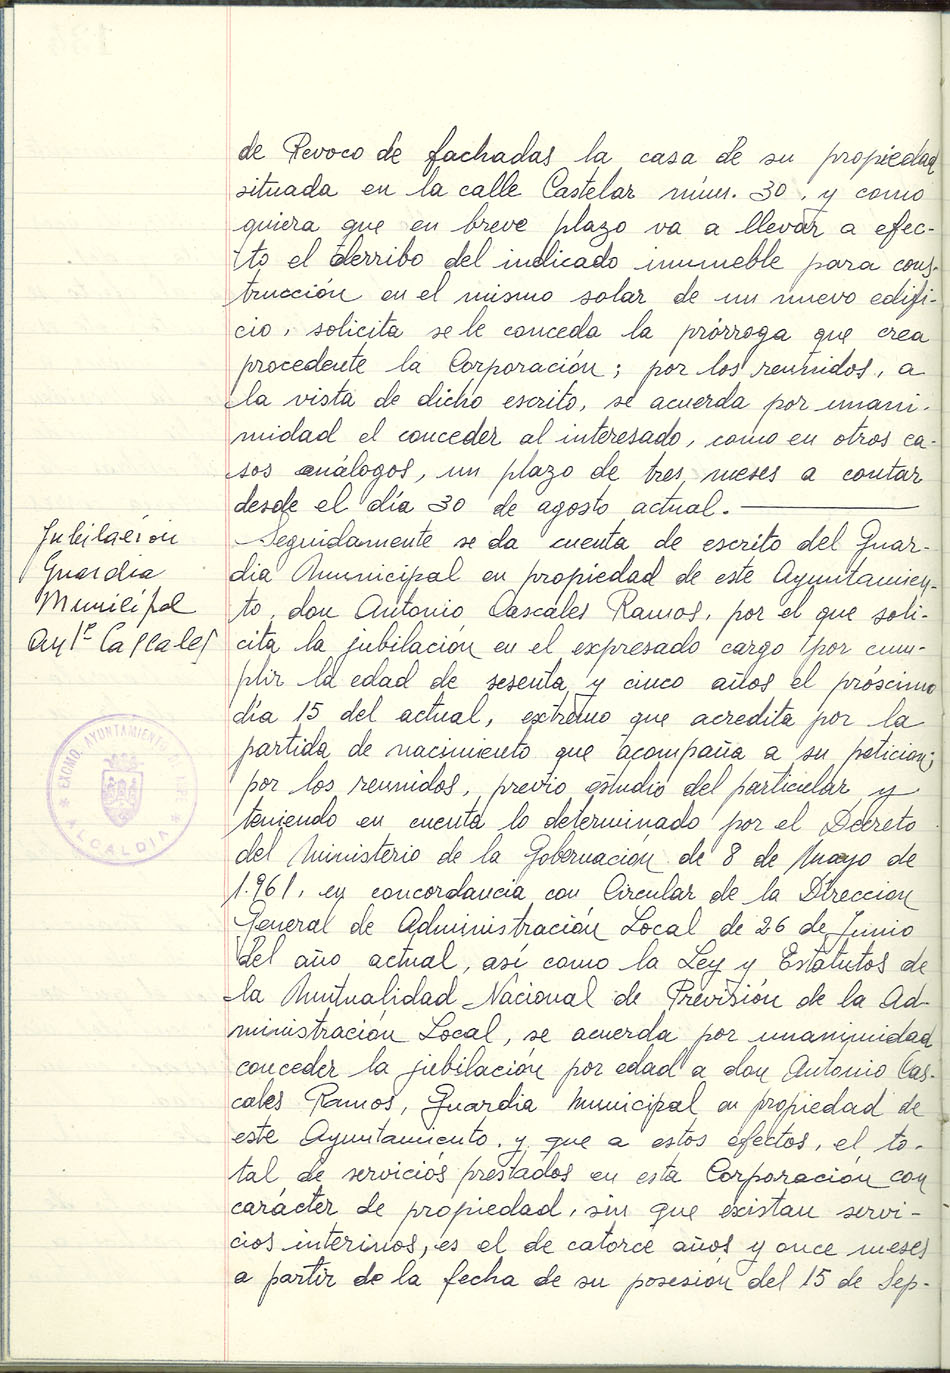 de Revoco de fachadas la casa de su propiedad
situada en la calle Castelar núm. 30, y como
quiera que en breve plazo va a llevar a efec-
to el derribo del indicado inmueble para cons-
trucción en el mismo solar de un nuevo edifi-
cio, solicita se le conceda la prórroga que crea
procedente la Corporación; por los reunidos, a
la vista de dicho escrito, se acuerda por unani-
midad el conceder al interesado, como en otros ca-
sos análogos, un plazo de tres meses a contar
desde el día 30 de agosto actual.
Jubilación
Guardia
Municipal
Antº Cascales
Seguidamente se da cuenta de escrito del Guar-
dia Municipal en propiedad de este Ayuntamien-
to, don Antonio Cascales Ramos, por el que soli-
cita la jubilación en el expresado cargo por cum-
plir la edad de sesenta y cinco años el próximo
día 15 del actual, extremo que acredita por la
partida de nacimiento que acompaña a su peticion;
por los reunidos, previo estudio del particular y
teniendo en cuenta lo determinado por el Decreto
del Ministerio de la Gobernación de 8 de Mayo de
1.961, en concordancia con Circular de la Direccion
General de Administración Local de 26 de Junio
del año actual, así como la Ley y Estatutos de
la Mutualidad Nacional de Previsión de la Ad-
ministración Local, se acuerda por unanimidad
conceder la jubilación por edad a don Antonio Cas-
cales Ramos, Guardia Municipal en propiedad de
este Ayuntamiento, y que a estos efectos, el to-
tal de servicios prestados en esta Corporación con
carácter de propiedad, sin que existan servi-
cios interinos, es el de catorce años y once meses
a partir de la fecha de su posesión del 15 de Sep-
EXCMO. AYUNTAMIENTO
ALCALDIA